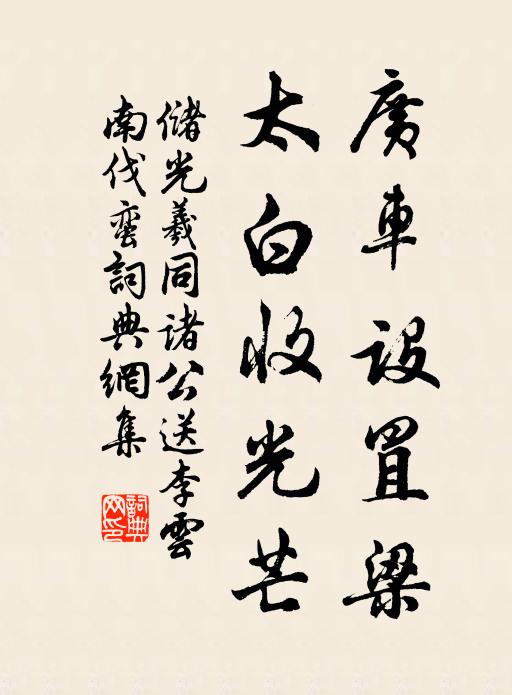 廣車設罝梁
太白收光芒
儲光羲同諸公送李雲
南伐蠻詞典網集
詞典
网印